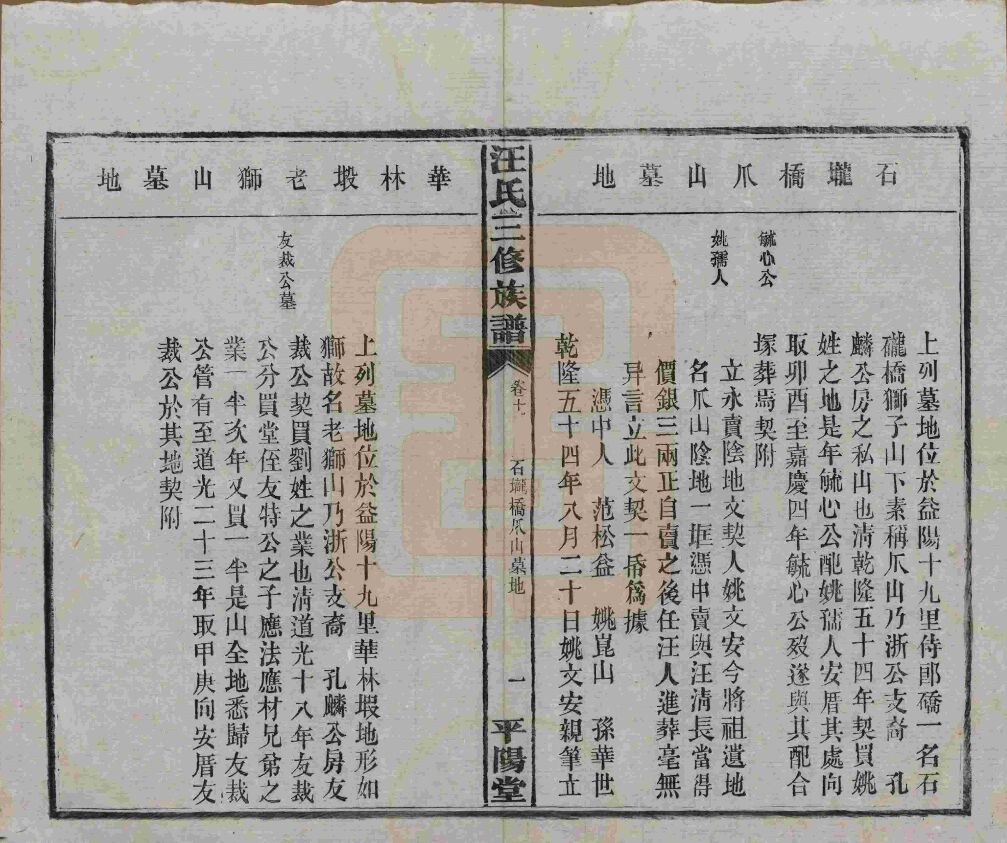 石壠橋爪山墓地
毓心公
姚孺人
上列墓地位於益陽十九里侍郎礄一名石
礲橋獅子山下素稱爪山乃浙公支裔　孔
麟公房之私山也淸乾隆五十四年契買姚
姓之地是年毓心公配姚孺人安厝其處向
取卯酉至嘉慶四年毓心公歿遂與其配合
塚葬焉契附
立永賣陰地文契人姚文安今將祖遺地
名爪山陰地一㽵憑中賣與汪淸長當得
價銀三兩正自賣之後任汪人進葬毫無
异言立此文契一帋爲據
憑中人　范松益　姚崑山　孫華世
乾隆五十四年八月二十日姚文安親筆立
汪氏三修族譜
卷十
石壠橋爪山墓地
一
平陽堂
華林塅老獅山墓地
友裁公墓
上列墓地位於益陽十九里華林塅地形如
獅故名老獅山乃浙公支裔　孔麟公房友
裁公契買劉姓之業也淸道光十八年友裁
公分買堂侄友特公之子應法應材兄弟之
業一半次年又買一半是山全地悉歸友裁
公管有至道光二十三年取甲庚向安厝友
裁公於其地契附